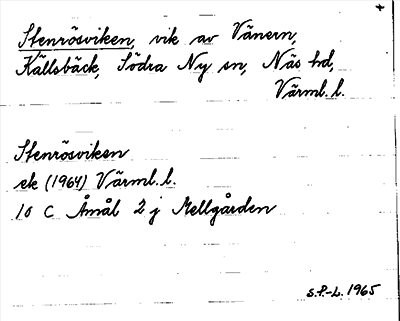 +
Stenrösviken, vik av Vänern,
Källsbäck, Södra Ny sn, Näs hd,
Värml. l.
Stenrösviken
ek (1964) Värml. l.
10 C Åmål 2 j Mellgården
S.P.-L. 1965